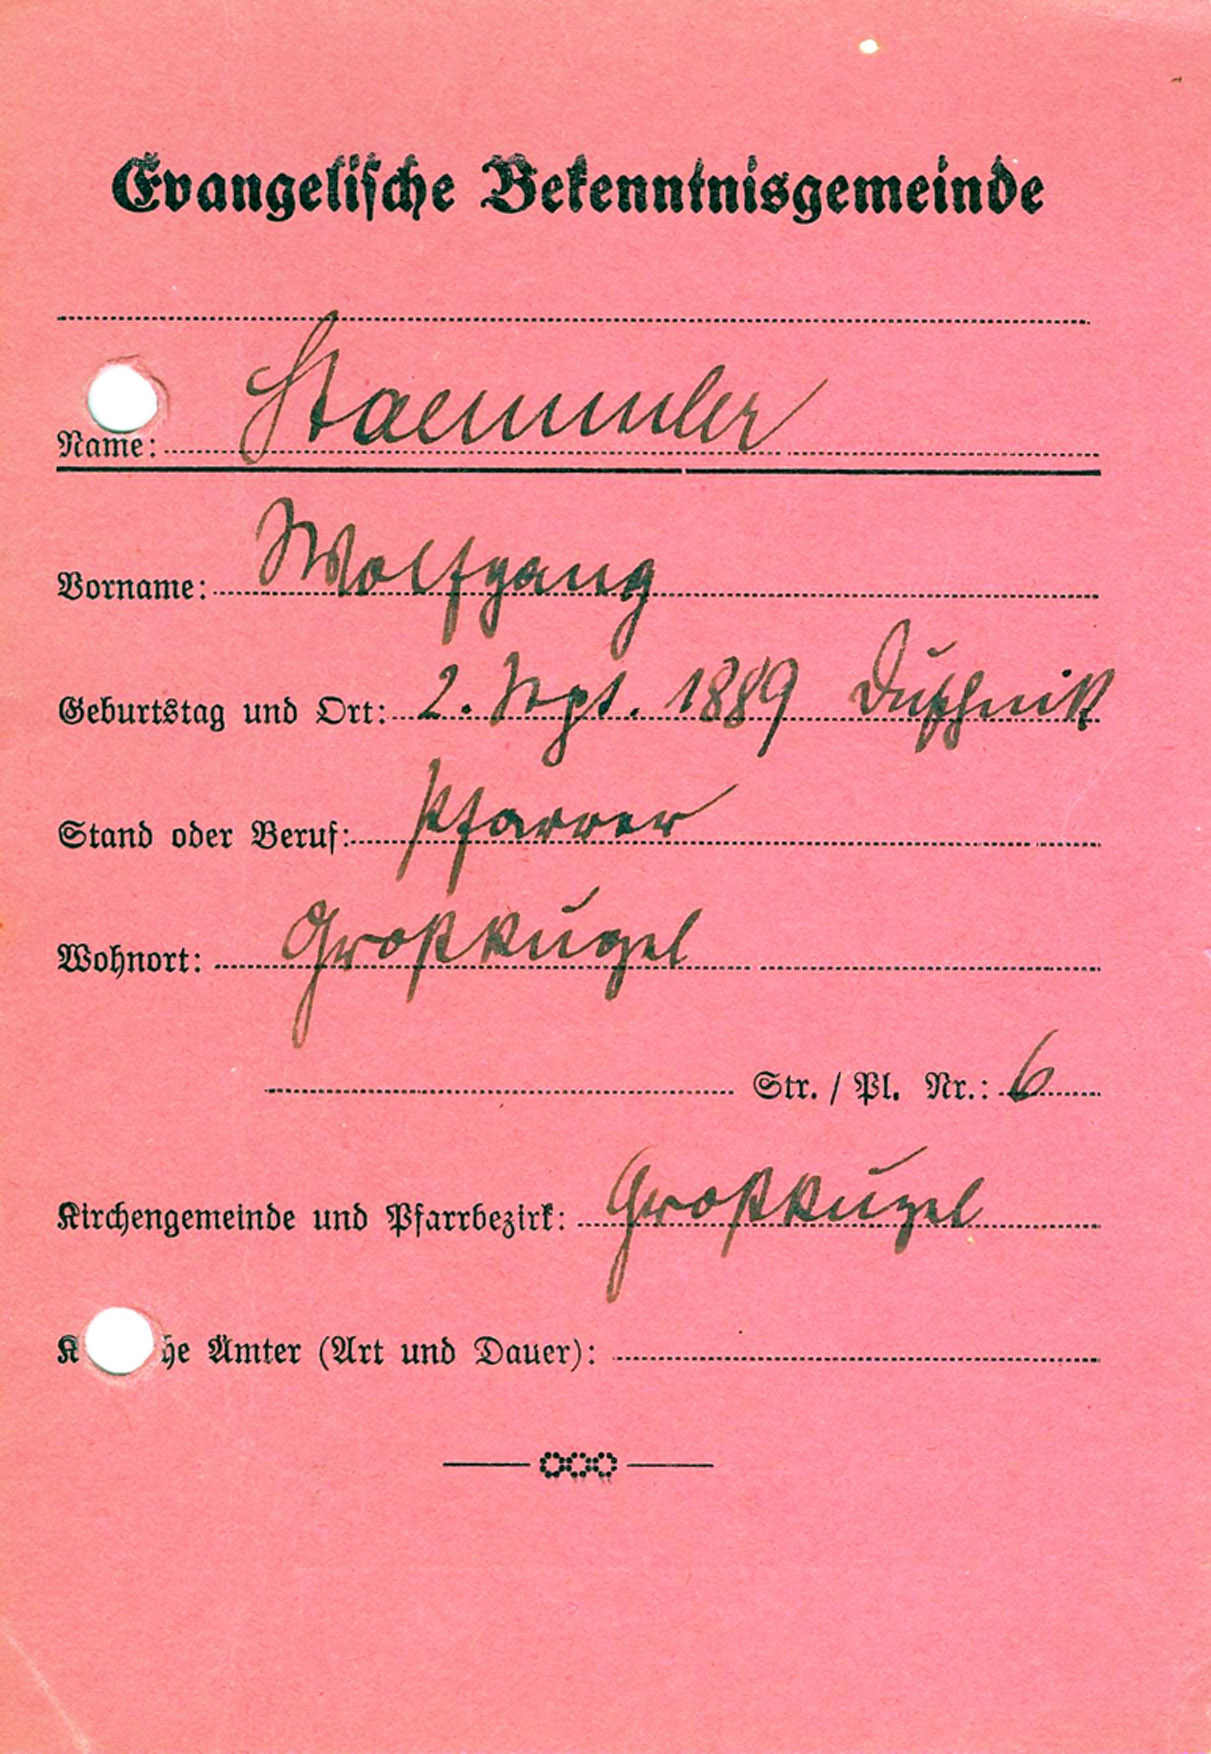 Evangelische Bekenntnisgemeinde
Name: Staemmler
Vorname: Wolfgang
Geburtstag und Ort: 2. Sept. 1889 Duschnik
Stand oder Beruf: Pfarrer
Wohnort: Großkugel
Str. / Pl. Nr.: 6
Kirchengemeinde und Pfarrbezirk: Großkugel
K he Ämter (Art und Dauer):